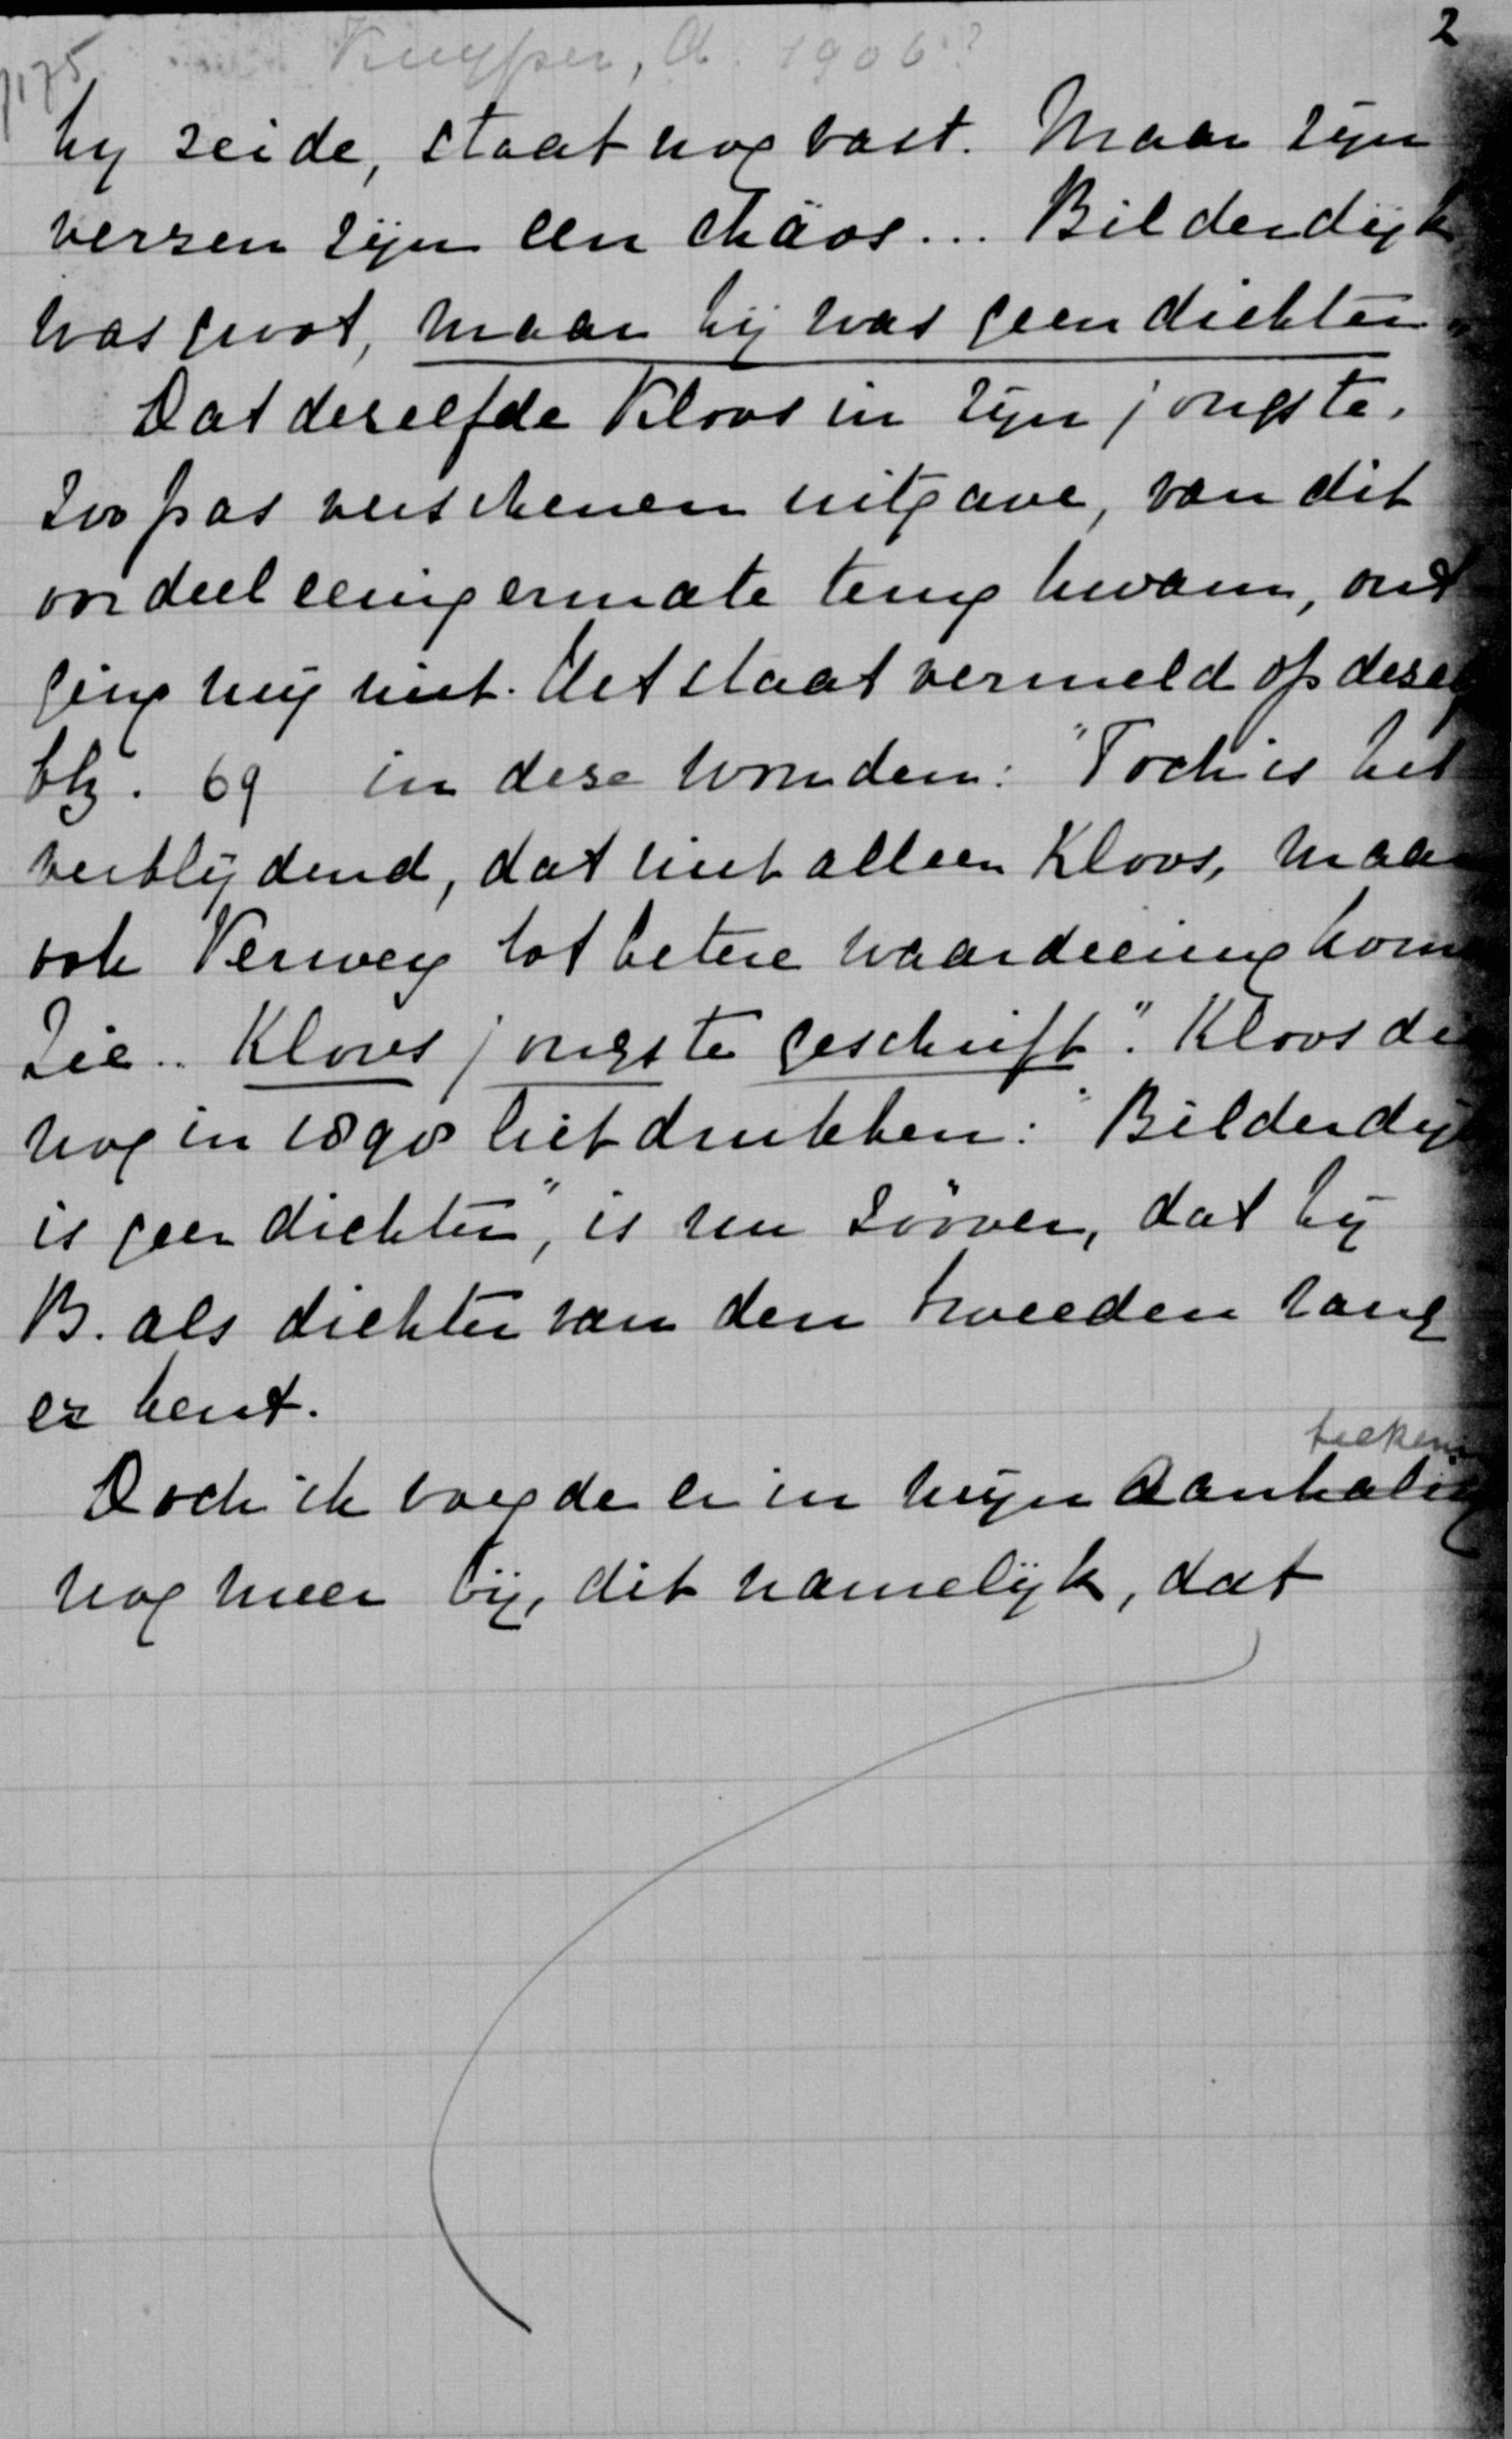 2
Kuyper, A. 1906?
hy zeide, staat nog vast. Maar zijn
verzen zijn een chäos... Bilderdijk
was groot, maar hij was geen dichter.
Dat dezelfde Kloos in zijn jongste,
zoo pas verschenen uitgave, van dit
oordeel eenigermate terug kwam, ont
ging mij niet. Het staat vermeld op dezel
blz. 69 in deze woorden: "Toch is het
verblijdend, dat niet alleen Kloos, maar
ook Verwey tot betere waardeering kom
Zie.. Kloos jongste geschrift". Kloos die
nog in 1890 liet drukken: "Bilderdijk
is geen dichter", is nu zoover, dat hij
B. als dichter van den tweeden rang
erkent.
teeken
Doch ik voegde er in mijn Aanhaling
nog meer bij, dit namelijk, dat